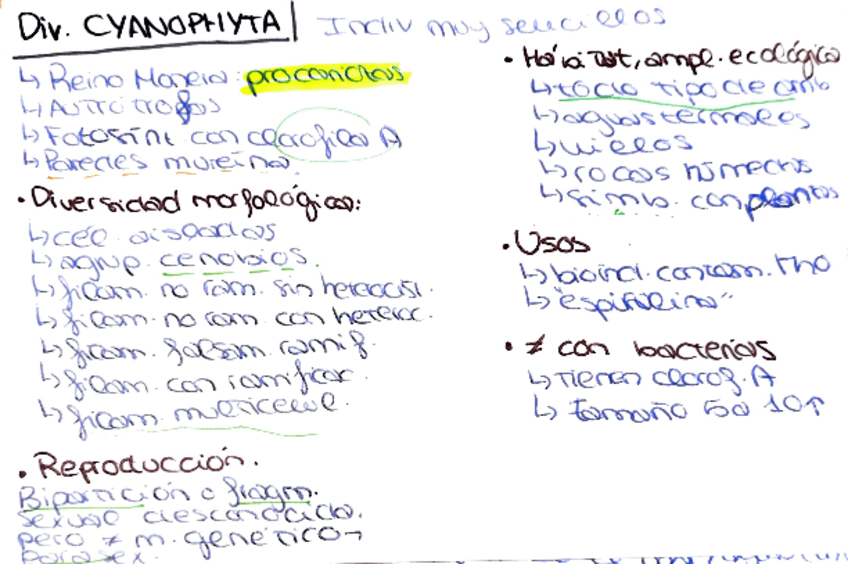 Div. CYANOPHYTA | Indiv muy sencillos
↳ Reino Monera: procariotas
↳ Autótrofos
↳ Fotosint. con clorofila A
↳ Paredes mureína.
• Diversidad morfológica:
↳ cél. aisladas
↳ agrup. cenobios.
↳ filam. no ram. sin heterocist.
↳ filam. no ram. con heteroc.
↳ filam. falsam. ramif.
↳ filam. con ramificac.
↳ filam. multicelul.
• Reproducción.
Bipartición o fragm.
sexual desconocida.
pero ≠ m. genético→
parasex.
• Hábitat, ampl. ecológica
↳ todo tipo de amb
↳ aguas termales
↳ hielos
↳ rocas húmedas
↳ simb. con plantas
• Usos
↳ bioind. contam. H2O
↳ "espirulina"
• ≠ con bacterias
↳ Tienen clorof. A
↳ tamaño 5 a 10↑